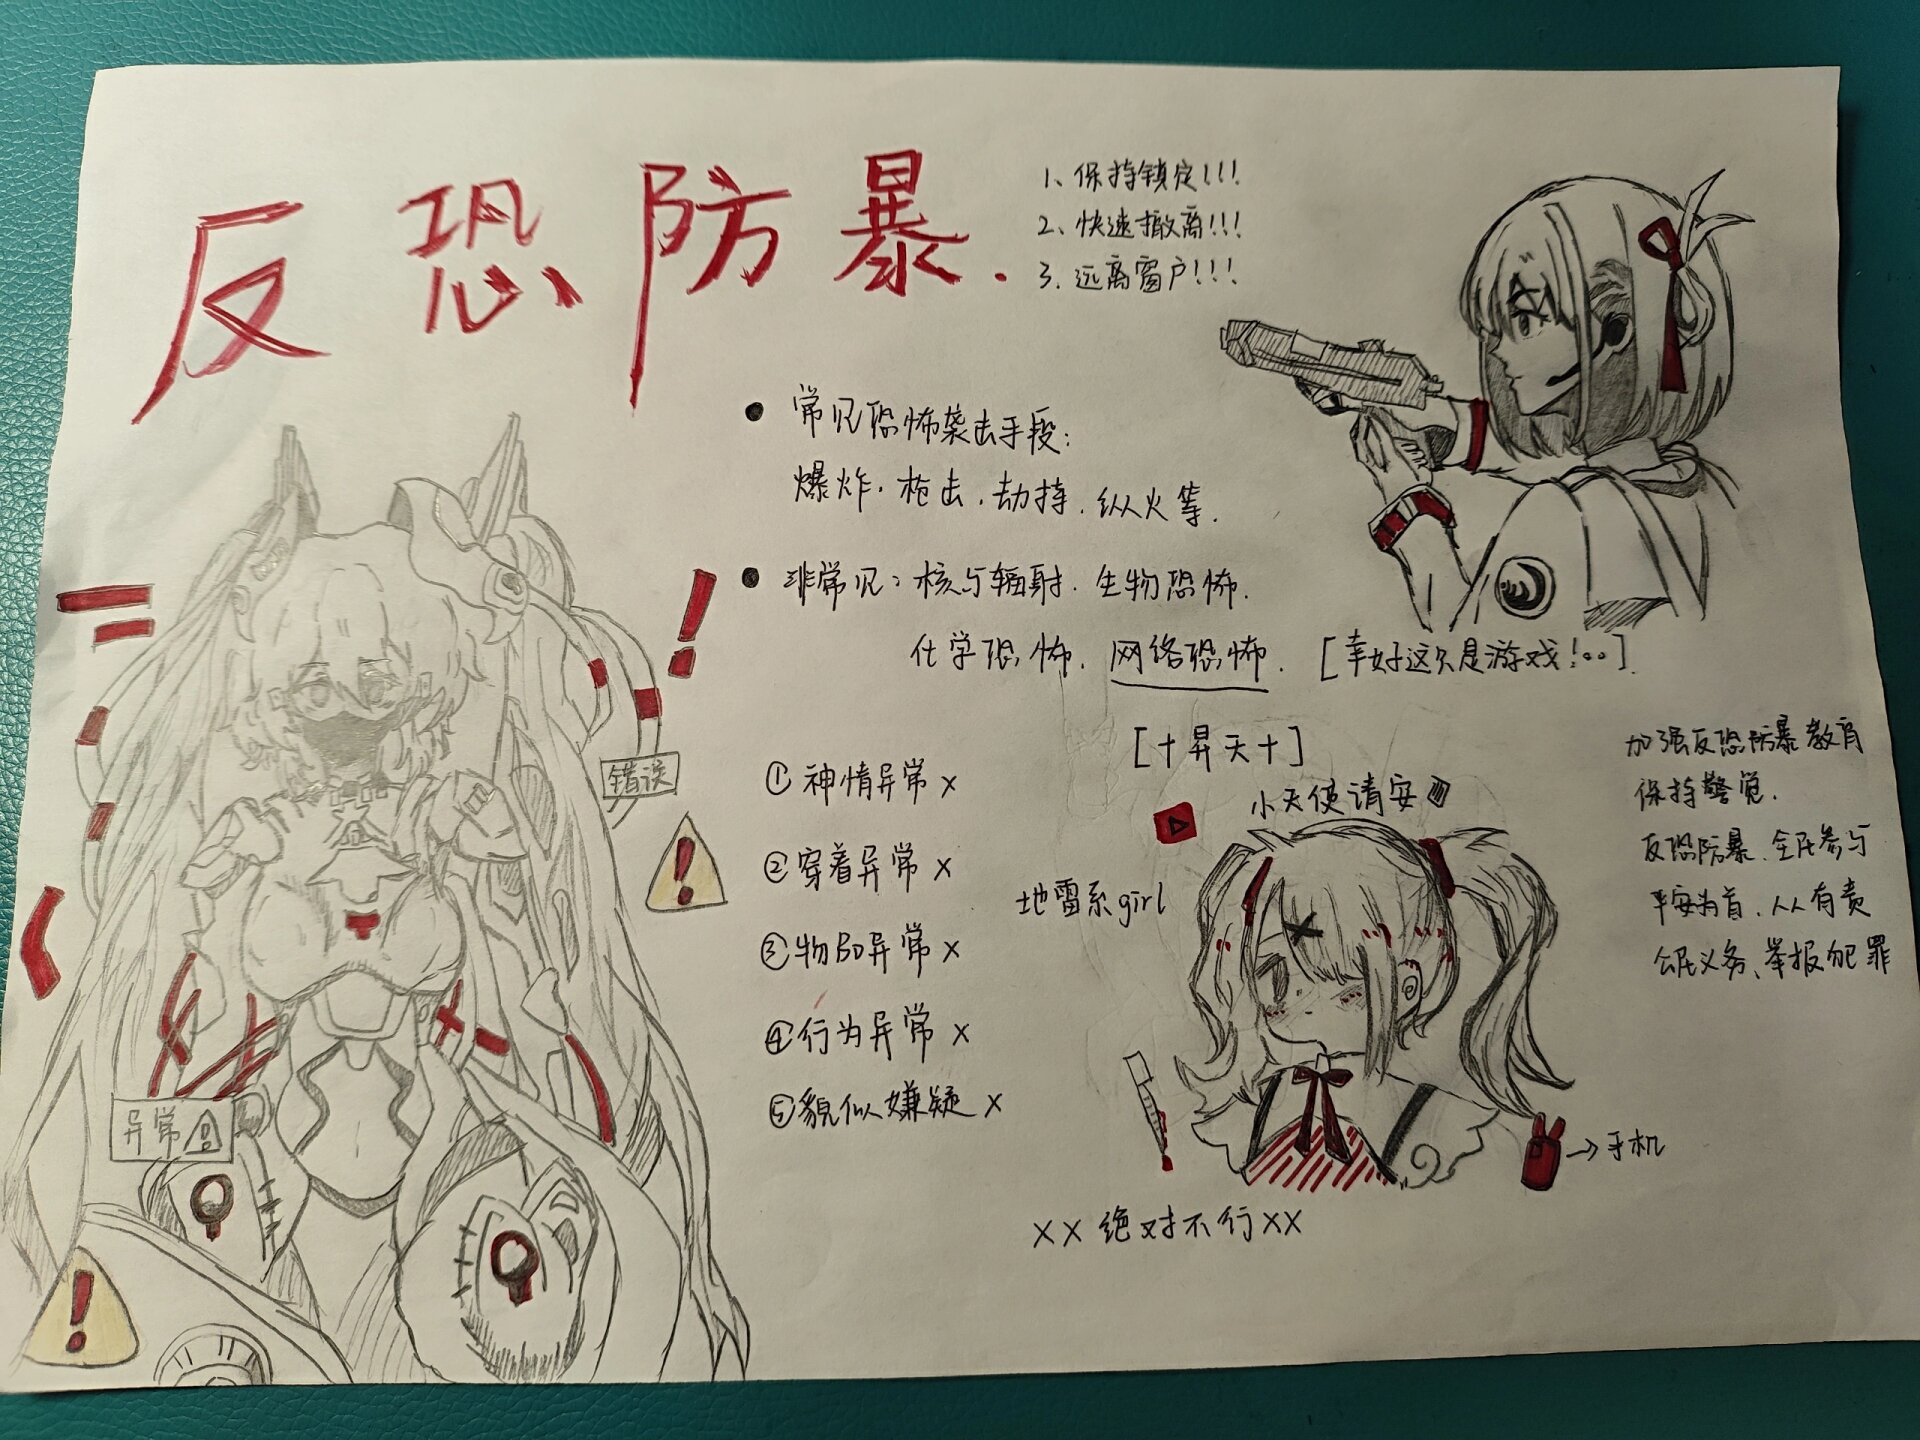 反恐防暴.
1、保持锁定!!!
2、快速撤离!!!
3、远离窗户!!!
常见恐怖袭击手段:
爆炸.枪击.劫持.纵火等.
非常见:核与辐射.生物恐怖.
化学恐怖.网络恐怖.
[幸好这只是游戏!。。].
错误
①神情异常×
②穿着异常×
③物品异常×
④行为异常×
⑤貌似嫌疑×
异常
[十昇天十]
小天使请安
地雷系girl
→手机
××绝对不行××
加强反恐防暴教育
保持警觉.
反恐防暴、全民参与
平安为首、人人有责
公民义务、举报犯罪